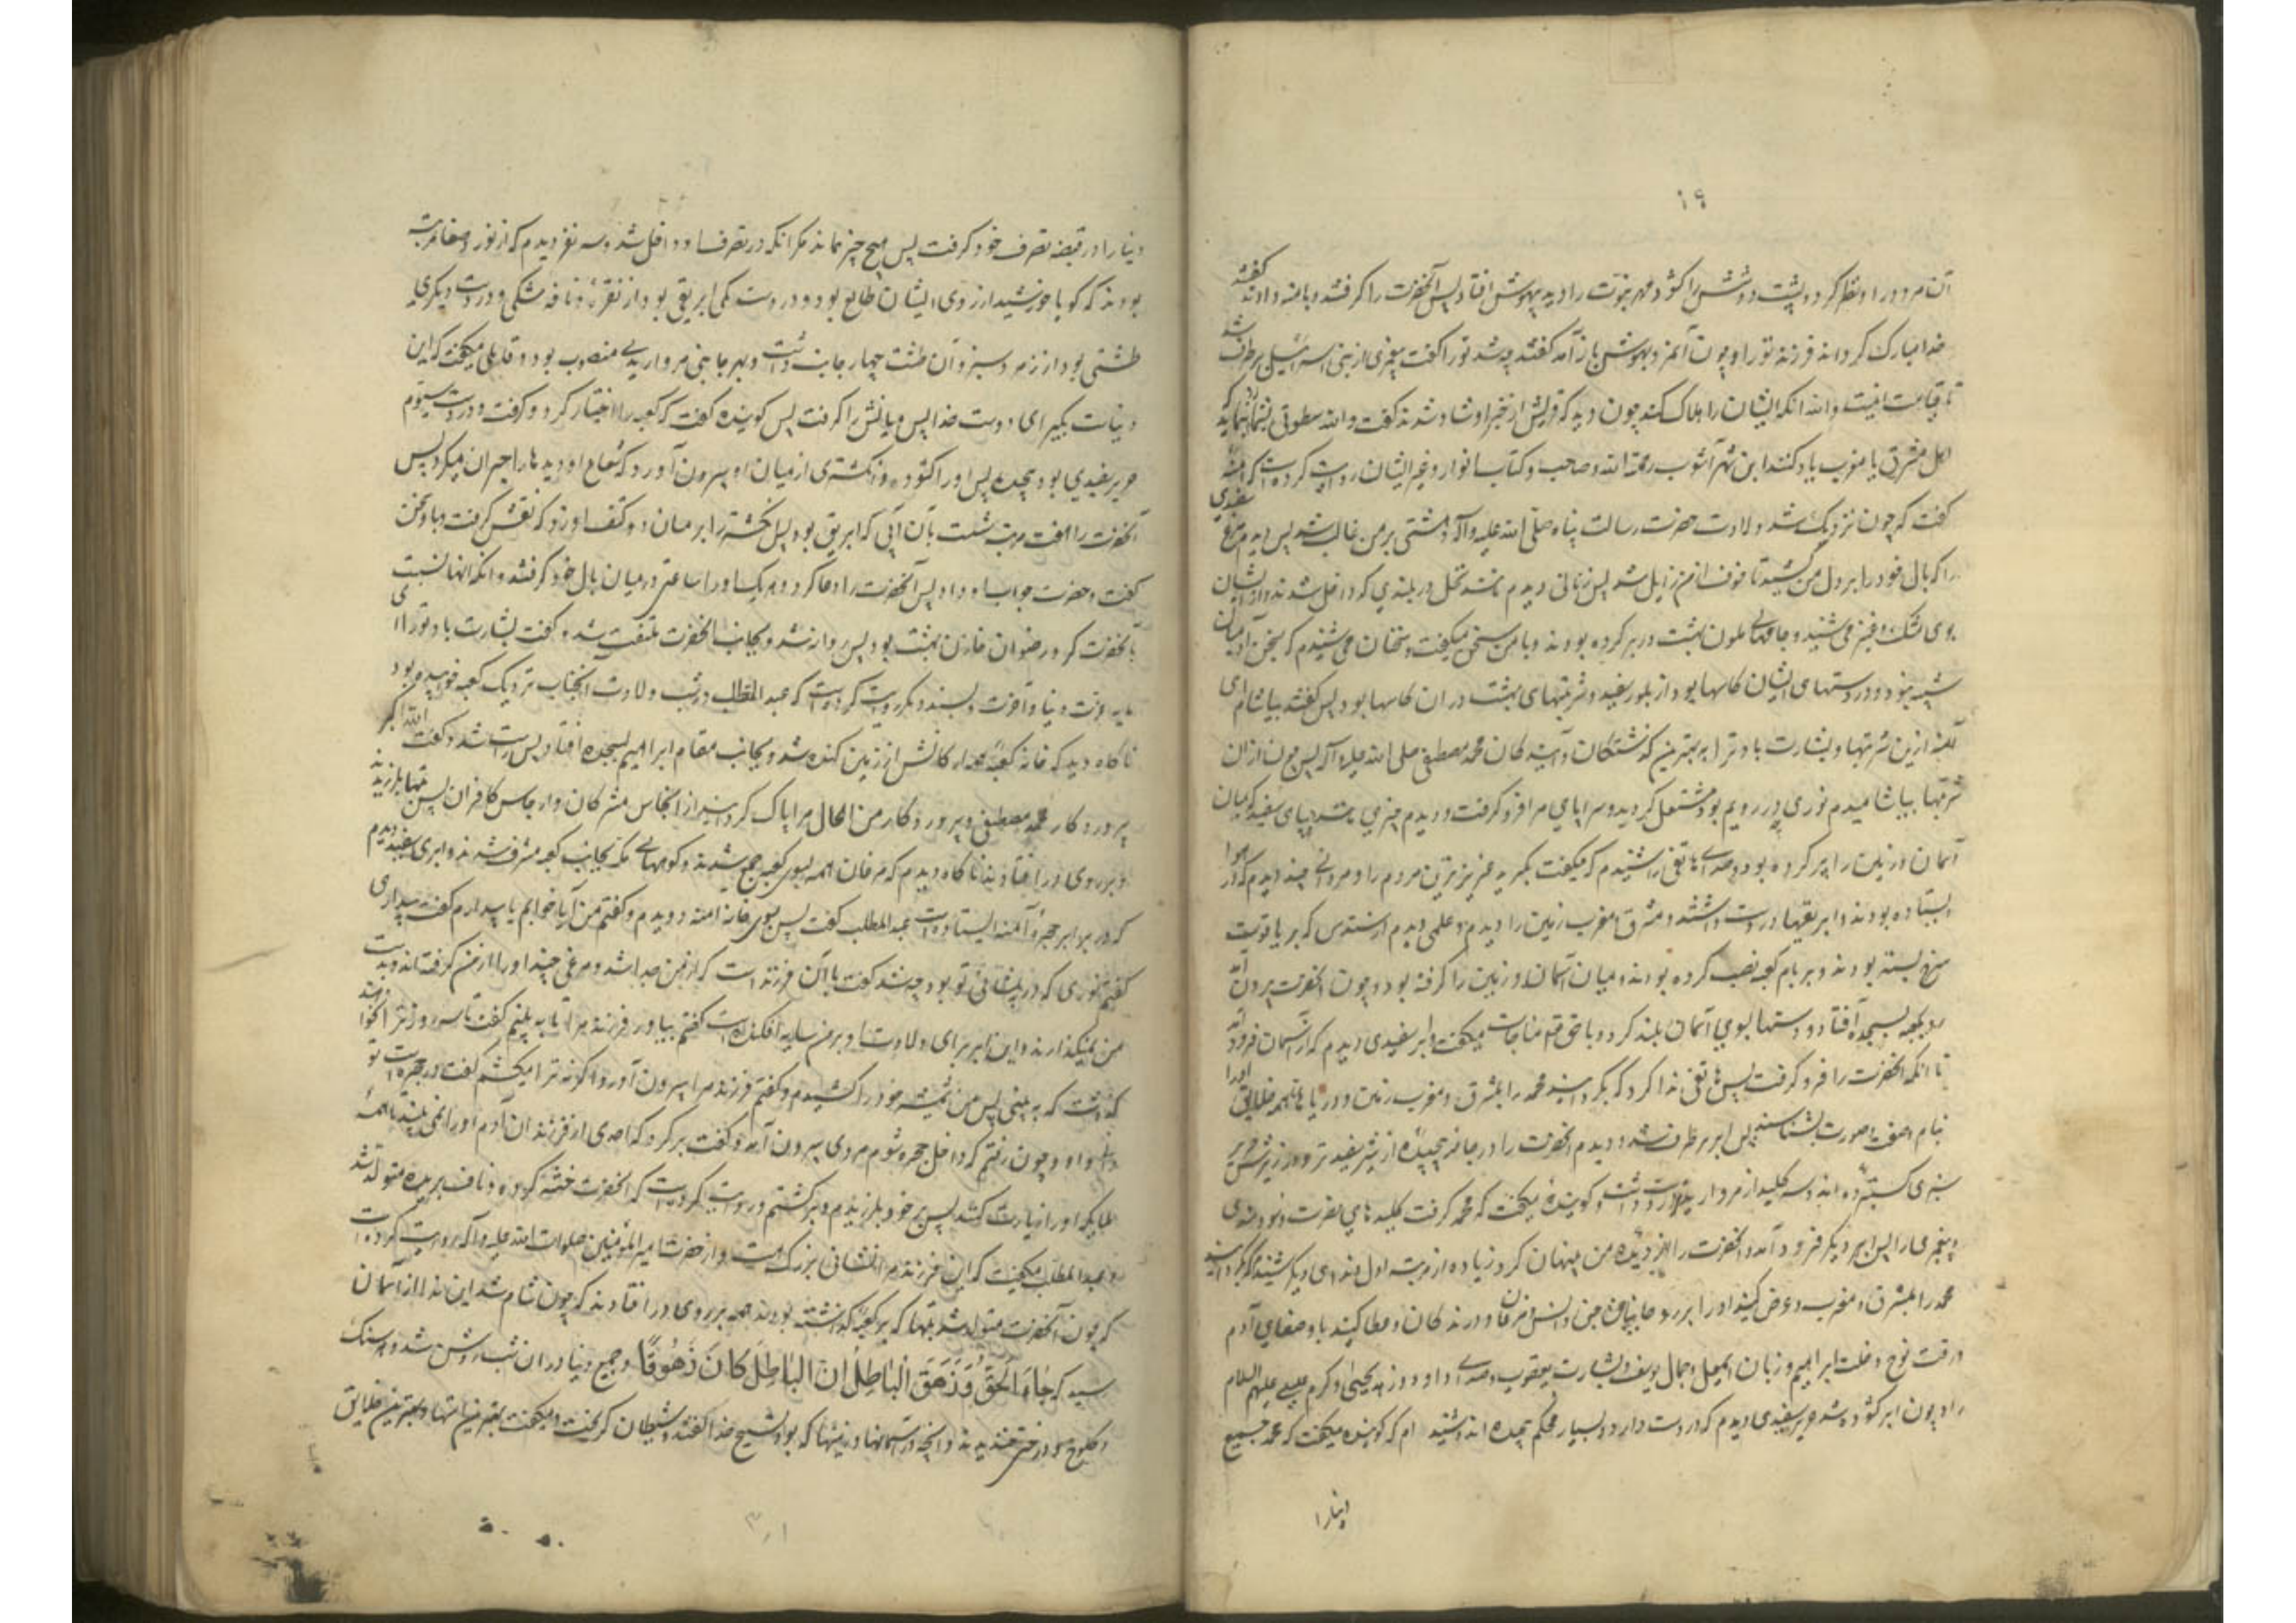 ۱۹
آن مردود را و نظر کرد در پشت دوشش را کشود و مهر نبوت را دید بیهوش افتاد پس آنحضرت را گرفتند و بآمنه دادند گفتند
خدا مبارک گرداند فرزند تو را و چون آن بیهوش باز آمد گفتند چه شد تو را گفت پیغمبری از بنی اسرائیل برطرف شد
تا قیامت اینست والله آنکه ایشان را هلاک کند چون دید که قریش از خبر او شاد شدند گفت والله سطوتی بشما بنماید که
اهل مشرق یا مغرب یاد کنند ابن شهر آشوب رحمة الله و صاحب کتاب انوار و غیر ایشان روایت کرده است که آمنه
گفت که چون نزدیک شد ولادت حضرت رسالت پناه صلی الله علیه وآله دهشتی بر من غالب شد پس دیدم مرغ سفیدی
را که بال خود را بر دل من کشید تا خوف از من زایل شد پس زنانی دیدم مانند نخل در بلندی که داخل شدند و از ایشان
بوی مشک و عنبر می شنیدم و جامهای ملون بهشت در بر کرده بودند و با من سخن میگفتند و سخنان می شنیدم که بسخن آدمیان
شبیه نبود و در دستهای ایشان کاسها بود از بلور سفید و شربتهای بهشت در آن کاسها بود پس گفتند بیاشام ای
آمنه ازین شربتها و بشارت باد ترا به بهترین گذشتگان و آیندگان محمد مصطفی صلی الله علیه وآله پس چون از آن
شربتها بیاشامیدم نوری که در رویم بود مشتعل گردید و سراپای مرا فرو گرفت و دیدم چیزی مانند دیبای سفید که میان
آسمان و زمین را پر کرده بود و صدای هاتفی را شنیدم که میگفت بگیرید عزیزترین مردم را و مردانی چند دیدم که در هوا
ایستاده بودند و ابریقها در دست داشتند و مشرق و مغرب زمین را دیدم و علمی دیدم از سندس که بر یاقوت
سرخ بسته بودند و بر بام کعبه نصب کرده بودند و میان آسمان و زمین را گرفته بود و چون آنحضرت بیرون آمد
رو بکعبه بسجده افتاد و دستها بسوی آسمان بلند کرد و با حق تعالی مناجات میگفت و ابر سفیدی دیدم که از آسمان فرود آمد
تا آنکه آنحضرت را فرو گرفت پس هاتفی ندا کرد که بگردانید محمد را بمشرق و مغرب زمین و دریاها تا همه خلایق او را
بنام و صفت و صورت بشناسند پس ابر برطرف شد و دیدم آنحضرت را در جامه پیچیده از شیر سفیدتر و در زیرش حریر
سبزی گسترده اند و سه کلید از مروارید در دست داشت و گوینده میگفت که محمد گرفت کلیدهای نصرت و سودمندی
و پیغمبری را پس ابر دیگر فرود آمد و آنحضرت را از دیده من پنهان کرد زیاده از مرتبه اول و ندای دیگر شنیدم که بگردانید
محمد را بمشرق و مغرب و عرض کنید او را بر روحانیان جن و انس و مرغان و درندگان و عطا کنید باو صفای آدم
و رقت نوح و خلت ابراهیم و زبان اسمعیل و جمال یوسف و بشارت یعقوب و صدای داود و زهد یحیی و کرم عیسی علیهم السلام
را و چون ابر گشوده شد حریر سفیدی دیدم که در دست دارد و بسیار محکم پیچیده اند و شنیدم که گوینده میگفت که محمد جمیع
دنیا را
دنیا را در قبضه تصرف خود گرفت پس هیچ چیز نماند مگر آنکه در تصرف او داخل شد و سه نفر دیدم که از نور و صفا مرتبه
بودند که گویا خورشید از روی ایشان طالع بود و در دست یکی ابریقی بود از نقره و نافه مشکی و در دست دیگری
طشتی بود از زمرد سبز و آن طشت چهار جانب داشت و بهر جانبی مرواریدی منصوب بود و قایلی میگفت که این
دنیاست بگیر ای دوست خدا پس میانش را گرفت پس گوینده گفت که کعبه را اختیار کرد و گرفت و در دست سیوم
حریر سفیدی بود پیچیده پس او را گشود و انگشتری از میان او بیرون آورد که شعاع او دیدها را حیران میکرد پس
آنحضرت را هفت مرتبه شست بآن آبی که ابریق بود پس انگشتر را بر میان دو کتف او زد که نقش گرفت و با او سخن
گفت و حضرت جواب او داد پس آنحضرت را دعا کرد و هر یک او را ساعتی در میان بال خود گرفتند و آنکه اینها نسبت
بآنحضرت کرد رضوان خازن بهشت بود پس روانه شد و بجانب آنحضرت ملتفت شد و گفت بشارت باد تو را ای
مایه عزت دنیا و آخرت و بسند دیگر روایت کرده است که عبد المطلب در شب ولادت آنجناب نزدیک کعبه خوابیده بود
ناگاه دید که خانه کعبه با همه ارکانش از زمین کنده شد و بجانب مقام ابراهیم بسجده افتاد پس راست شد و گفت الله اکبر
پروردگار محمد مصطفی و پروردگار من الحال مرا پاک گردانید از انجاس مشرکان و ارجاس کافران پس بتها بلرزیدند
و بر روی در افتادند ناگاه دیدم که مرغان همه بسوی کعبه جمع شدند و کوههای مکه بجانب کعبه مشرف شدند و ابری سفید دیدم
که در برابر حجره آمنه ایستاده است عبد المطلب گفت پس بسوی خانه آمنه دویدم و گفتم من آیا خوابم یا بیدارم گفت بیداری
گفتم نوری که در پیشانی تو بود چه شد گفت با آن فرزند است که از من جدا شد و مرغی چند او را از من گرفته اند و بدست
من نمیگذارند و این ابر برای ولادت او بر من سایه افکنده است گفتم بیاور فرزند مرا تا به بینم گفت تا سه روز ترا نخواهند
گذاشت که به بینی پس من شمشیر خود را کشیدم و گفتم فرزند مرا بیرون آور و اگر نه ترا میکشم گفت در حجره است تو
دانی و او و چون رفتم که داخل حجره شوم مردی بیرون آمد و گفت برگرد که احدی از فرزندان آدم او را نمی بیند تا همه
ملایکه او را زیارت کنند پس بر خود بلرزیدم و برگشتم و روایت کرده است که آنحضرت ختنه کرده و ناف بریده متولد شد
و عبد المطلب میگفت که این فرزند مرا شانی بزرگ هست و از حضرت امیر المؤمنین صلوات الله علیه وآله روایت کرده است
که چون آنحضرت متولد شد بتها که بر کعبه گذاشته بودند همه بر روی در افتادند که چون شام شد این ندا از آسمان
رسید که جَاءَ الْحَقُّ وَزَهَقَ الْبَاطِلُ اِنَّ الْبَاطِلَ كَانَ زَهُوقًا و جمیع دنیا در آن شب روشن شد و هر سنگ
و کلوخ و درختی خندیدند و آنچه در آسمانها و زمینها که بود تسبیح خدا گفتند و شیطان گریخت و میگفت بهترین امتها و بهترین خلایق